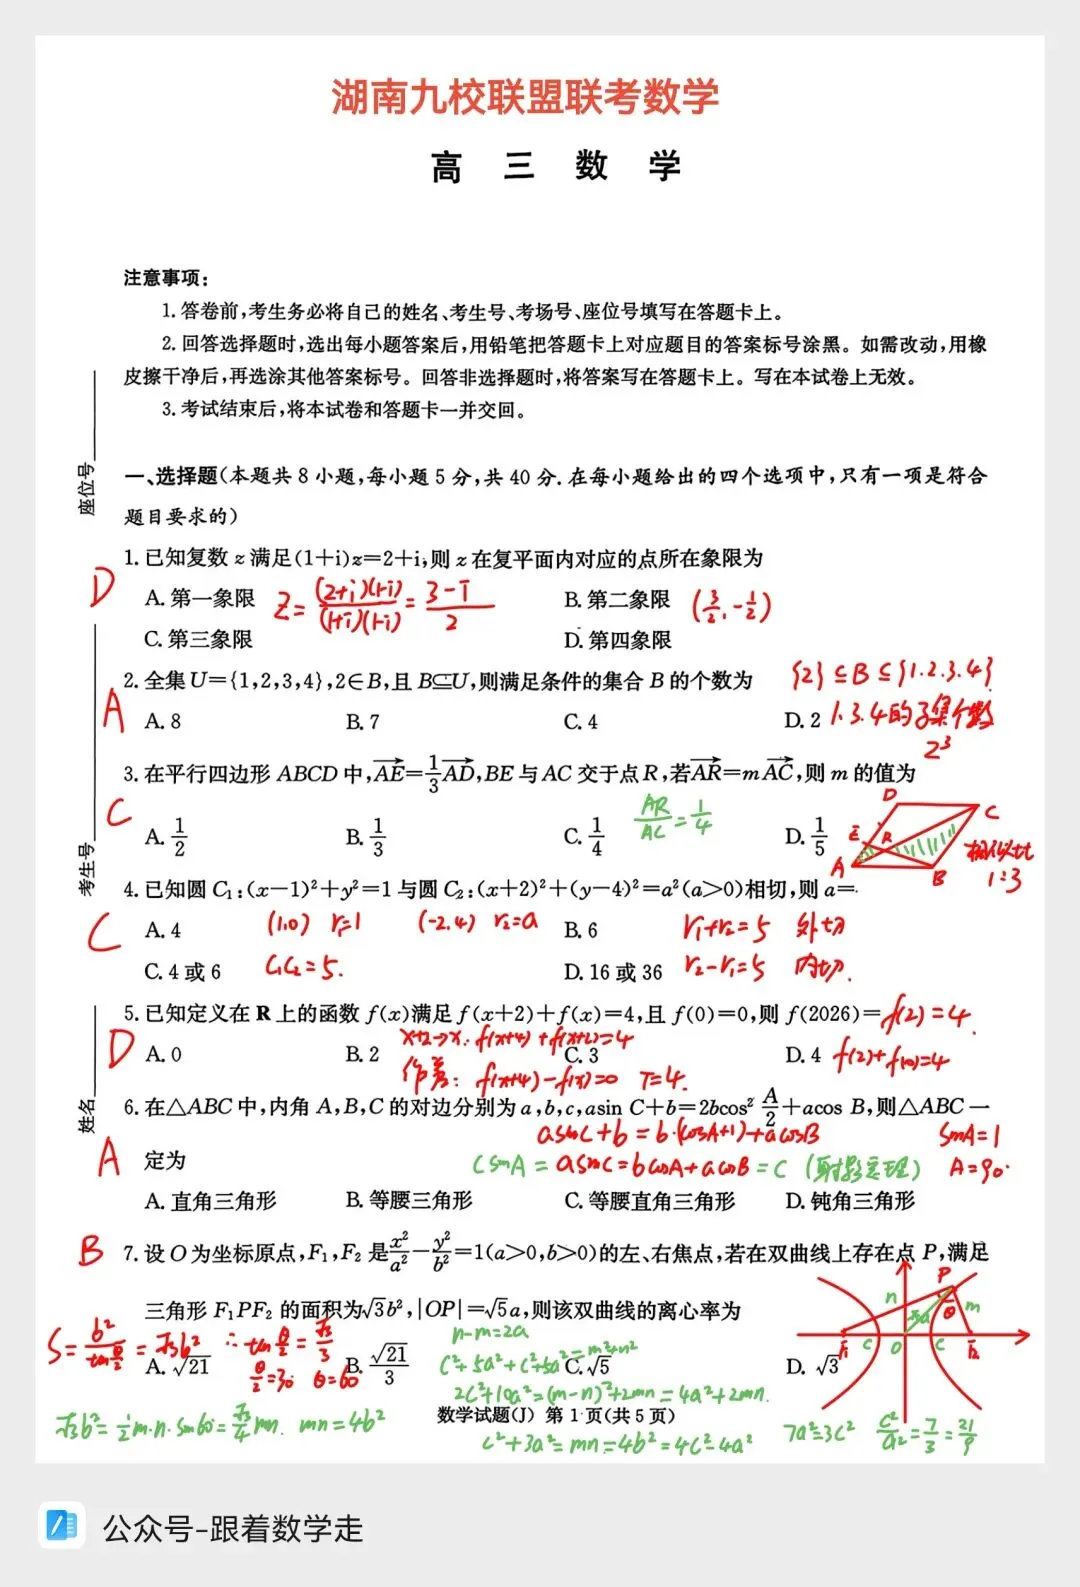 湖南九校联盟联考数学
高 三 数 学
注意事项:
1.答卷前,考生务必将自己的姓名、考生号、考场号、座位号填写在答题卡上。
2.回答选择题时,选出每小题答案后,用铅笔把答题卡上对应题目的答案标号涂黑。如需改动,用橡
皮擦干净后,再选涂其他答案标号。回答非选择题时,将答案写在答题卡上。写在本试卷上无效。
3.考试结束后,将本试卷和答题卡一并交回。
座位号
考生号
姓名
一、选择题(本题共 8 小题,每小题 5 分,共 40 分.在每小题给出的四个选项中,只有一项是符合
题目要求的)
1.已知复数 z 满足(1+i)z=2+i,则 z 在复平面内对应的点所在象限为
D
A.第一象限 z=(2+i)(1-i)/(1+i)(1-i)=3-i/2 B.第二象限 (3/2,-1/2)
C.第三象限 D.第四象限
2.全集U={1,2,3,4},2∈B,且 B⊆U,则满足条件的集合 B 的个数为 {2}⊆B⊆{1.2.3.4}
A
A.8 B.7 C.4 D.2 1.3.4的子集个数
2³
3.在平行四边形 ABCD 中,AE→=1/3AD→,BE 与 AC 交于点 R,若AR→=mAC→,则 m 的值为
C
A.1/2 B.1/3 C.1/4 AR/AC=1/4 D.1/5
D C E R A B 相似比
1:3
4.已知圆 C₁:(x-1)²+y²=1 与圆 C₂:(x+2)²+(y-4)²=a²(a>0)相切,则 a=
C
A.4 (1,0) r₁=1 (-2,4) r₂=a B.6 r₁+r₂=5 外切
C.4 或 6 C₁C₂=5. D.16 或 36 r₂-r₁=5 内切.
5.已知定义在 R 上的函数 f(x)满足 f(x+2)+f(x)=4,且 f(0)=0,则 f(2026)= f(2)=4.
x+2→x: f(x+4)+f(x+2)=4
D
A.0 B.2 C.3 D.4 f(2)+f(0)=4
作差: f(x+4)-f(x)=0 T=4.
6.在△ABC 中,内角 A,B,C 的对边分别为 a,b,c,asin C+b=2bcos² A/2+acos B,则△ABC 一
asinC+b=b·(cosA+1)+acosB sinA=1
A
定为 csinA=asinC=bcosA+acosB=c (射影定理) A=90.
A.直角三角形 B.等腰三角形 C.等腰直角三角形 D.钝角三角形
B
7.设 O 为坐标原点,F₁,F₂ 是x²/a²-y²/b²=1(a>0,b>0)的左、右焦点,若在双曲线上存在点 P,满足
三角形 F₁PF₂ 的面积为√3b²,|OP|=√5a,则该双曲线的离心率为
S=b²/tanθ/2=√3b² ∴tanθ/2=√3/3 n-m=2a
θ/2=30 θ=60 c²+5a²+c²+5a²=m²+n²
A.√21 B.√21/3 C.√5 D.√3
2c²+10a²=(m-n)²+2mn=4a²+2mn.
P n m θ √5a F₁ c O c F₂
√3b²=1/2m·n·sin60=√3/4mn. mn=4b²
数学试题(J) 第 1 页(共 5 页)
c²+3a²=mn=4b²=4c²-4a² 7a²=3c² c²/a²=7/3=21/9
公众号-跟着数学走